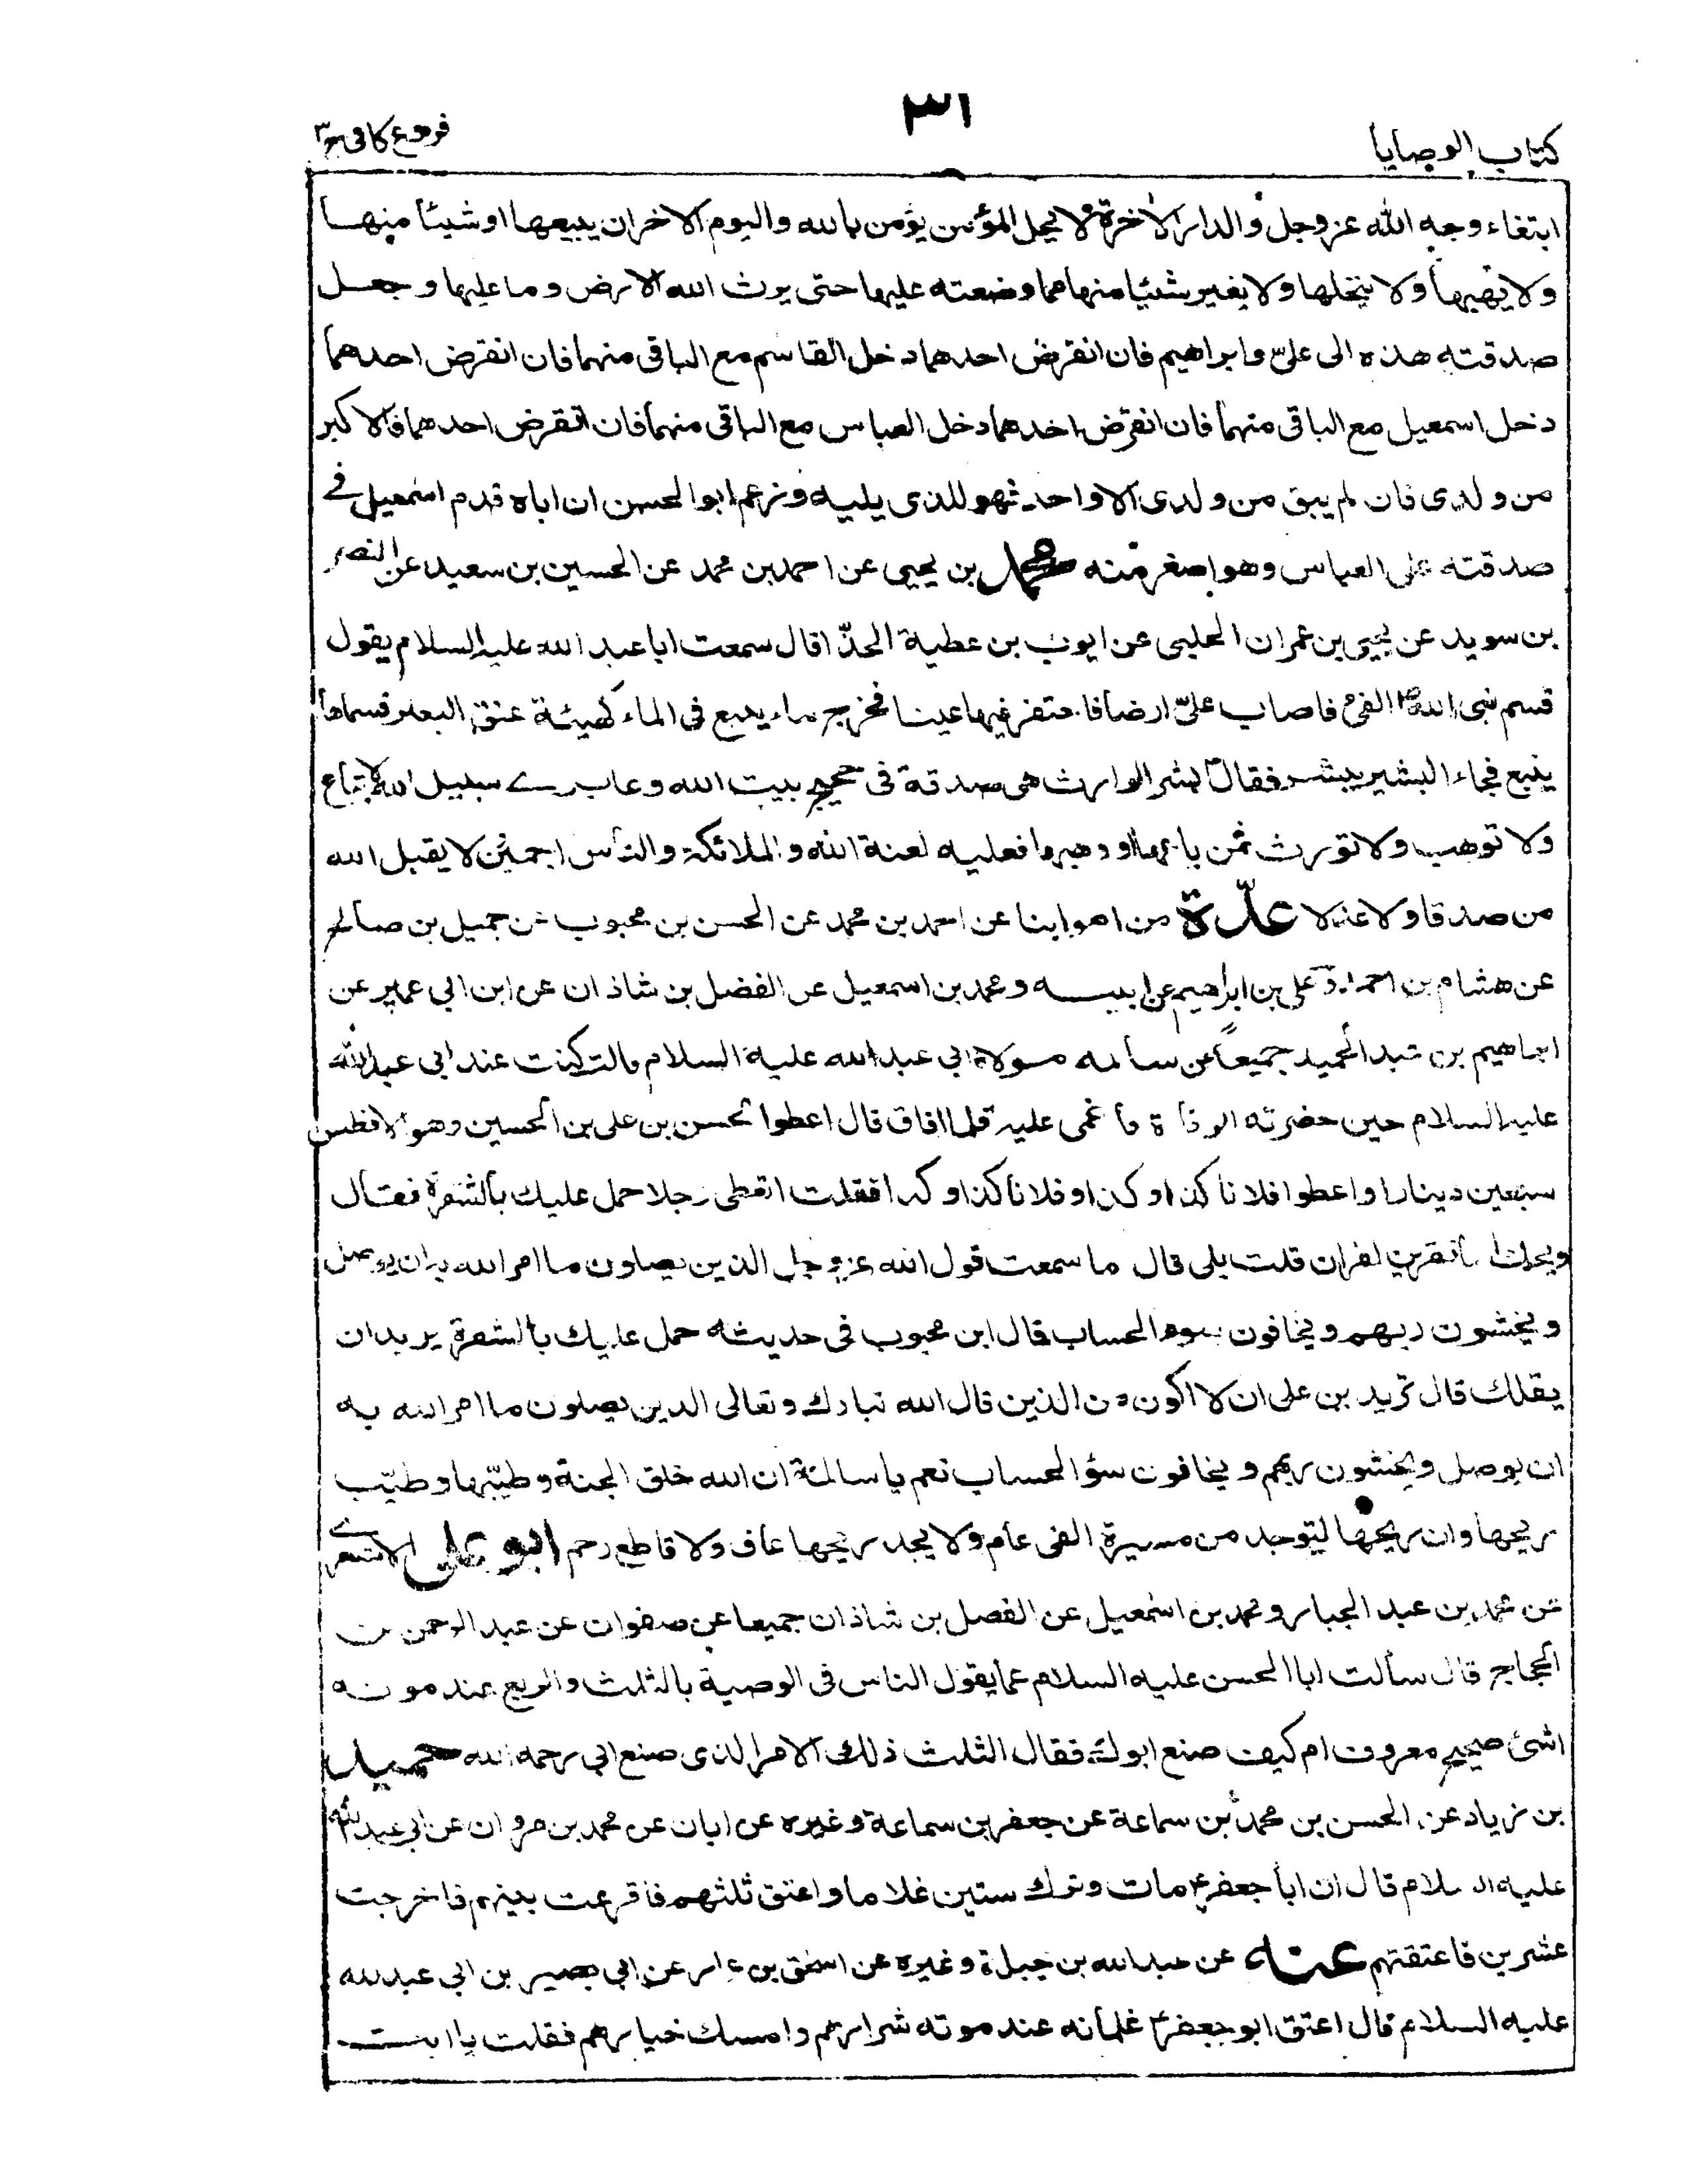 كتاب الوصايا
٣١
فروع كافي ج٣
ابتغاء وجه الله عزوجل والدار الآخرة ولا يحل لمؤمن يؤمن بالله واليوم الاخر ان يبيعها او شيئا منها
ولا يهبها ولا ينحلها ولا يغير شيئا منها مما وضعته عليها حتى يرث الله الارض وما عليها وجعل
صدقته هذه الى علي وابراهيم فان انقرض احدهما دخل القاسم مع الباقي منهما فان انقرض احدهما
دخل اسمعيل مع الباقي منهما فان انقرض احدهما دخل العباس مع الباقي منهما فان انقرض احدهما فالاكبر
من ولدى فان لم يبق من ولدى الا واحد فهو للذى يليه وزعم ابو الحسن ان اباه قدم اسمعيل في
صدقته على العباس وهو اصغر منه محمد بن يحيى عن احمد بن محمد عن الحسين بن سعيد عن النضر
بن سويد عن يحيى بن عمران الحلبى عن ايوب بن عطية الحذّا قال سمعت ابا عبد الله عليه السلام يقول
قسم نبى الله ص الفئ فاصاب علىّ ارضا فاحتفر فيها عينا فخرج ماء ينبع في الماء كهيئة عنق البعير فسماها
ينبع فجاء البشير يبشر فقال بشر الوارث هي صدقة في حجيج بيت الله وعابرے سبيل الله لا تباع
ولا توهب ولا تورث فمن باعها او وهبها فعليه لعنة الله والملائكة والناس اجمعين لا يقبل الله
من صدقا ولا عدلا عدّة من اصحابنا عن احمد بن محمد عن الحسن بن محبوب عن جميل بن صالح
عن هشام بن احمر وعلى بن ابراهيم عن ابيه ومحمد بن اسمعيل عن الفضل بن شاذان عن ابن ابي عمير عن
ابراهيم بن عبد الحميد جميعاً عن سالمه مولاة ابي عبد الله عليه السلام قالت كنت عند ابي عبد الله
عليه السلام حين حضرته الوفاة فاغمى عليه فلما افاق قال اعطوا الحسن بن على بن الحسين وهو الافطس
سبعين دينارا واعطوا فلانا كذا وكذا وفلانا كذا وكذا فقلت اتعطى رجلا حمل عليك بالشفرة فقال
ويحك اما تقرئين القران قلت بلى قال ما سمعت قول الله عزوجل الذين يصلون ما امر الله به ان يوصل
ويخشون ربهم ويخافون سوء الحساب قال ابن محبوب في حديثه حمل عليك بالشفرة يريد ان
يقتلك قال تريد بن على ان لا اكون من الذين قال الله تبارك وتعالى الذين يصلون ما امر الله به
ان يوصل ويخشون ربهم ويخافون سؤ الحساب نعم يا سالمة ان الله خلق الجنة وطيّبها وطيّب
ريحها وان ريحها ليتوجد من مسيرة الفى عام ولا يجد ريحها عاف ولا قاطع رحم ابو على الاشعرے
عن محمد بن عبد الجبار ومحمد بن اسمعيل عن الفضل بن شاذان جميعا عن صفوان عن عبد الرحمن بن
الحجاج قال سألت ابا الحسن عليه السلام عما يقول الناس في الوصية بالثلث والربع عند موته
اشئ صحيح معروف ام كيف صنع ابوك فقال الثلث ذلك الامر الذى صنع ابي رحمه الله حميد
بن زياد عن الحسن بن محمد بن سماعة عن جعفر بن سماعة وغيره عن ابان عن محمد بن مروان عن ابي عبد الله
عليه السلام قال ان ابا جعفر ع مات وترك ستين غلاما واعتق ثلثهم فاقرعت بينهم فاخرجت
عشرين فاعتقتهم عنه عن عبد الله بن جبلة وغيره عن اسحق بن عمار عن ابي بصير بن ابي عبد الله
عليه السلام قال اعتق ابو جعفر ع غلمانه عند موته شرارهم وامسك خيارهم فقلت يا ابت